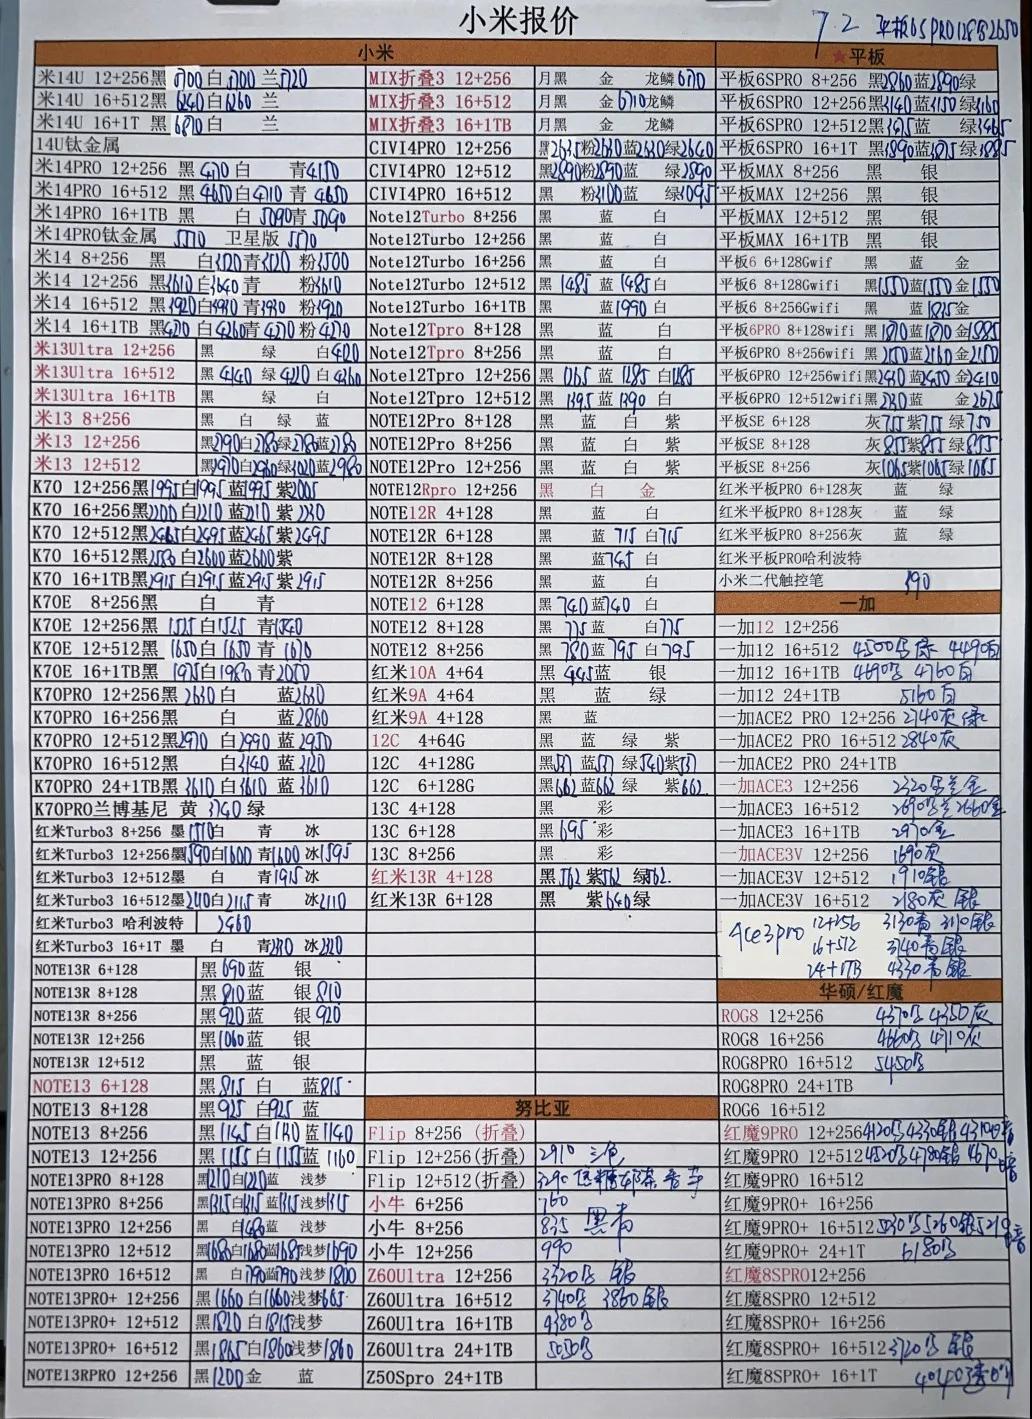 小米报价
7.2 平板6SPRO12882650
小米
米14U 12+256黑5700白5700兰5720
米14U 16+512黑6240白6260兰
米14U 16+1T 黑6870白 兰
14U钛金属
米14PRO 12+256 黑4170白 青4150
米14PRO 16+512 黑4650白4710青4650
米14PRO 16+1TB 黑 白5090青5090
米14PRO钛金属 5570 卫星版5570
米14 8+256 黑 白3520青3520粉3500
米14 12+256黑3610白3640青 粉3610
米14 16+512 黑3920白3930青3930粉3920
米14 16+1TB 黑4270白4260青4270粉4270
米13Ultra 12+256 黑 绿 白4120
米13Ultra 16+512 黑4140绿4220白4360
米13Ultra 16+1TB 黑 绿 白
米13 8+256 黑 白 绿 蓝
米13 12+256 黑2790白2780绿2780蓝2780
米13 12+512 黑2970白2960绿3020蓝2980
K70 12+256黑1995白1995蓝1995紫2005
K70 16+256黑2200白2210蓝2210紫2230
K70 12+512黑2465白2495蓝2465紫2495
K70 16+512黑2580白2600蓝2600紫
K70 16+1TB黑2915白2915蓝2915紫2915
K70E 8+256黑 白 青
K70E 12+256黑1525白1525青1540
K70E 12+512黑1650白1650青1670
K70E 16+1TB黑1975白1980青2050
K70PRO 12+256黑2630白 蓝2630
K70PRO 16+256黑 白 蓝2860
K70PRO 12+512黑2970白2990蓝2950
K70PRO 16+512黑 白3140蓝3120
K70PRO 24+1TB黑3610白3610蓝3610
K70PRO兰博基尼 黄3740绿
红米Turbo3 8+256 墨1570白 青 冰
红米Turbo3 12+256墨1590白1600青1600冰1595
红米Turbo3 12+512墨 白 青1915冰
红米Turbo3 16+512墨2110白2115青 冰2110
红米Turbo3 哈利波特 2460
红米Turbo3 16+1T 墨 白 青2320冰2320
NOTE13R 6+128 黑690蓝 银
NOTE13R 8+128 黑810蓝 银810
NOTE13R 8+256 黑920蓝 银920
NOTE13R 12+256 黑1060蓝 银
NOTE13R 12+512 黑 蓝 银
NOTE13 6+128 黑815白 蓝815
NOTE13 8+128 黑925白925蓝
NOTE13 8+256 黑1145白1130蓝1140
NOTE13 12+256 黑1155白1155蓝1160
NOTE13PRO 8+128 黑1210白1220蓝 浅梦
NOTE13PRO 8+256 黑1315白1315蓝1315浅梦1315
NOTE13PRO 12+256 黑 白1480蓝 浅梦
NOTE13PRO 12+512 黑1680白1680蓝1685浅梦1690
NOTE13PRO 16+512 黑 白1790蓝1790浅梦1800
NOTE13PRO+ 12+256 黑1660白1660浅梦1665
NOTE13PRO+ 12+512 黑1820白1815浅梦
NOTE13PRO+ 16+512 黑1865白1860浅梦1860
NOTE13RPRO 12+256 黑1200金 蓝
MIX折叠3 12+256 月黑 金 龙鳞6170
MIX折叠3 16+512 月黑 金6710龙鳞
MIX折叠3 16+1TB 月黑 金 龙鳞
CIVI4PRO 12+256 黑2635粉2630蓝2630绿2640
CIVI4PRO 12+512 黑2890粉2890蓝 绿2890
CIVI4PRO 16+512 黑 粉3100蓝 绿3095
Note12Turbo 8+256 黑 蓝 白
Note12Turbo 12+256 黑 蓝 白
Note12Turbo 16+256 黑 蓝 白
Note12Turbo 12+512 黑1485蓝1485白
Note12Turbo 16+1TB 黑 蓝1990白
Note12Tpro 8+128 黑 蓝 白
Note12Tpro 8+256 黑 蓝 白
Note12Tpro 12+256 黑1265蓝1285白1285
Note12Tpro 12+512 黑1395蓝1390白
NOTE12Pro 8+128 黑 蓝 白 紫
NOTE12Pro 8+256 黑 蓝 白 紫
NOTE12Pro 12+256 黑 蓝 白 紫
NOTE12Rpro 12+256 黑 白 金
NOTE12R 4+128 黑 蓝 白
NOTE12R 6+128 黑 蓝715白715
NOTE12R 8+128 黑 蓝745白
NOTE12R 8+256 黑 蓝 白
NOTE12 6+128 黑740蓝740白
NOTE12 8+128 黑775蓝 白775
NOTE12 8+256 黑780蓝795白795
红米10A 4+64 黑445蓝 银
红米9A 4+64 黑 蓝 绿
红米9A 4+128 黑 蓝
12C 4+64G 黑 蓝 绿 紫
12C 4+128G 黑537蓝537绿540紫537
12C 6+128G 黑662蓝662绿 紫662
13C 4+128 黑 彩
13C 6+128 黑695彩
13C 8+256 黑 彩
红米13R 4+128 黑562紫562绿562
红米13R 6+128 黑 紫640绿
努比亚
Flip 8+256 (折叠)
Flip 12+256(折叠) 2910 三色
Flip 12+512(折叠) 3290
小牛 6+256 760
小牛 8+256 835 黑青
小牛 12+256 990
Z60Ultra 12+256 3320 银
Z60Ultra 16+512 3740 3860银
Z60Ultra 16+1TB 4380
Z60Ultra 24+1TB 5050
Z50Spro 24+1TB
★平板
平板6SPRO 8+256 黑2860蓝2890绿
平板6SPRO 12+256 黑3140蓝3150绿3160
平板6SPRO 12+512黑3475蓝 绿3465
平板6SPRO 16+1T 黑3890蓝3875绿3885
平板MAX 8+256 黑 银
平板MAX 12+256 黑 银
平板MAX 12+512 黑 银
平板MAX 16+1TB 黑 银
平板6 6+128Gwif 黑 蓝 金
平板6 8+128Gwifi 黑1550蓝1550金1550
平板6 8+256Gwifi 黑 蓝1835金
平板6PRO 8+128wifi 黑1870蓝1870金1885
平板6PRO 8+256wifi 黑2150蓝2160金2150
平板6PRO 12+256wifi黑2430蓝2450金2410
平板6PRO 12+512wifi黑 蓝 金2675
平板SE 6+128 灰755紫755绿750
平板SE 8+128 灰855紫855绿855
平板SE 8+256 灰1065紫1065绿1065
红米平板PRO 6+128灰 蓝 绿
红米平板PRO 8+128灰 蓝 绿
红米平板PRO 8+256灰 蓝 绿
红米平板PRO哈利波特
小米二代触控笔 390
一加
一加12 12+256
一加12 16+512 4500 绿 4490白
一加12 16+1TB 4690 4760白
一加12 24+1TB 5160白
一加ACE2 PRO 12+256 2740灰绿
一加ACE2 PRO 16+512 2840灰
一加ACE2 PRO 24+1TB
一加ACE3 12+256 2320 兰金
一加ACE3 16+512 2690 兰2660金
一加ACE3 16+1TB 2970金
一加ACE3V 12+256 1690灰
一加ACE3V 12+512 1910银
一加ACE3V 16+512 2180灰 银
Ace3pro 12+256 3130青 3110银
16+512 3740青银
24+1TB 4330青银
华硕/红魔
ROG8 12+256 4370 4350灰
ROG8 16+256 4660 4710灰
ROG8PRO 16+512 5450
ROG8PRO 24+1TB
ROG6 16+512
红魔9PRO 12+256 4120 4330银 4310
红魔9PRO 12+512 4520 4780银 4670
红魔9PRO 16+512
红魔9PRO+ 16+256
红魔9PRO+ 16+512 5030 5260银
红魔9PRO+ 24+1T 6180
红魔8SPRO12+256
红魔8SPRO+ 12+512
红魔8SPRO+ 16+256
红魔8SPRO+ 16+512 3720 银
红魔8SPRO+ 16+1T 4040